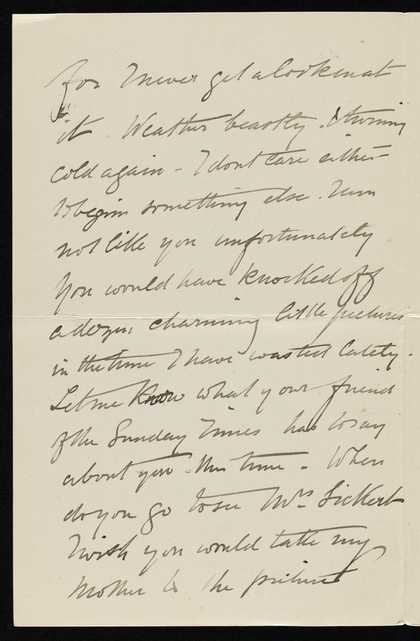 for I never get a look in at
it. Weather beastly. & turning
cold again - I dont care either
to begin something else. I am
not like you unfortunately
You would have knocked off
a dozen charming little pictures
in the time I have wasted lately.
Let me know what your friend
of the Sunday Times has to say
about you this time - When
do you go to see Mrs Sickert
I wish you would take my
mother to the pictures